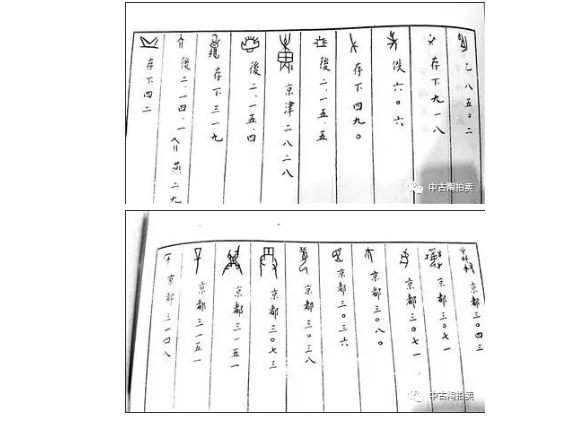 乙八五〇二
存下九一八
佚六〇六
存下四九〇
後二.一五.五
京津二八二八
後二.一五.四
存下三一九
後二.一四.一 燕二九
存下四二
中古陶拍卖
京都三〇四三
京都三〇七一
京都三〇七一
京都三〇八〇
京都三〇三六
京都三〇三八
京都三〇七三
京都三一五一
京都三一五一
京都三一四八
中古陶拍卖